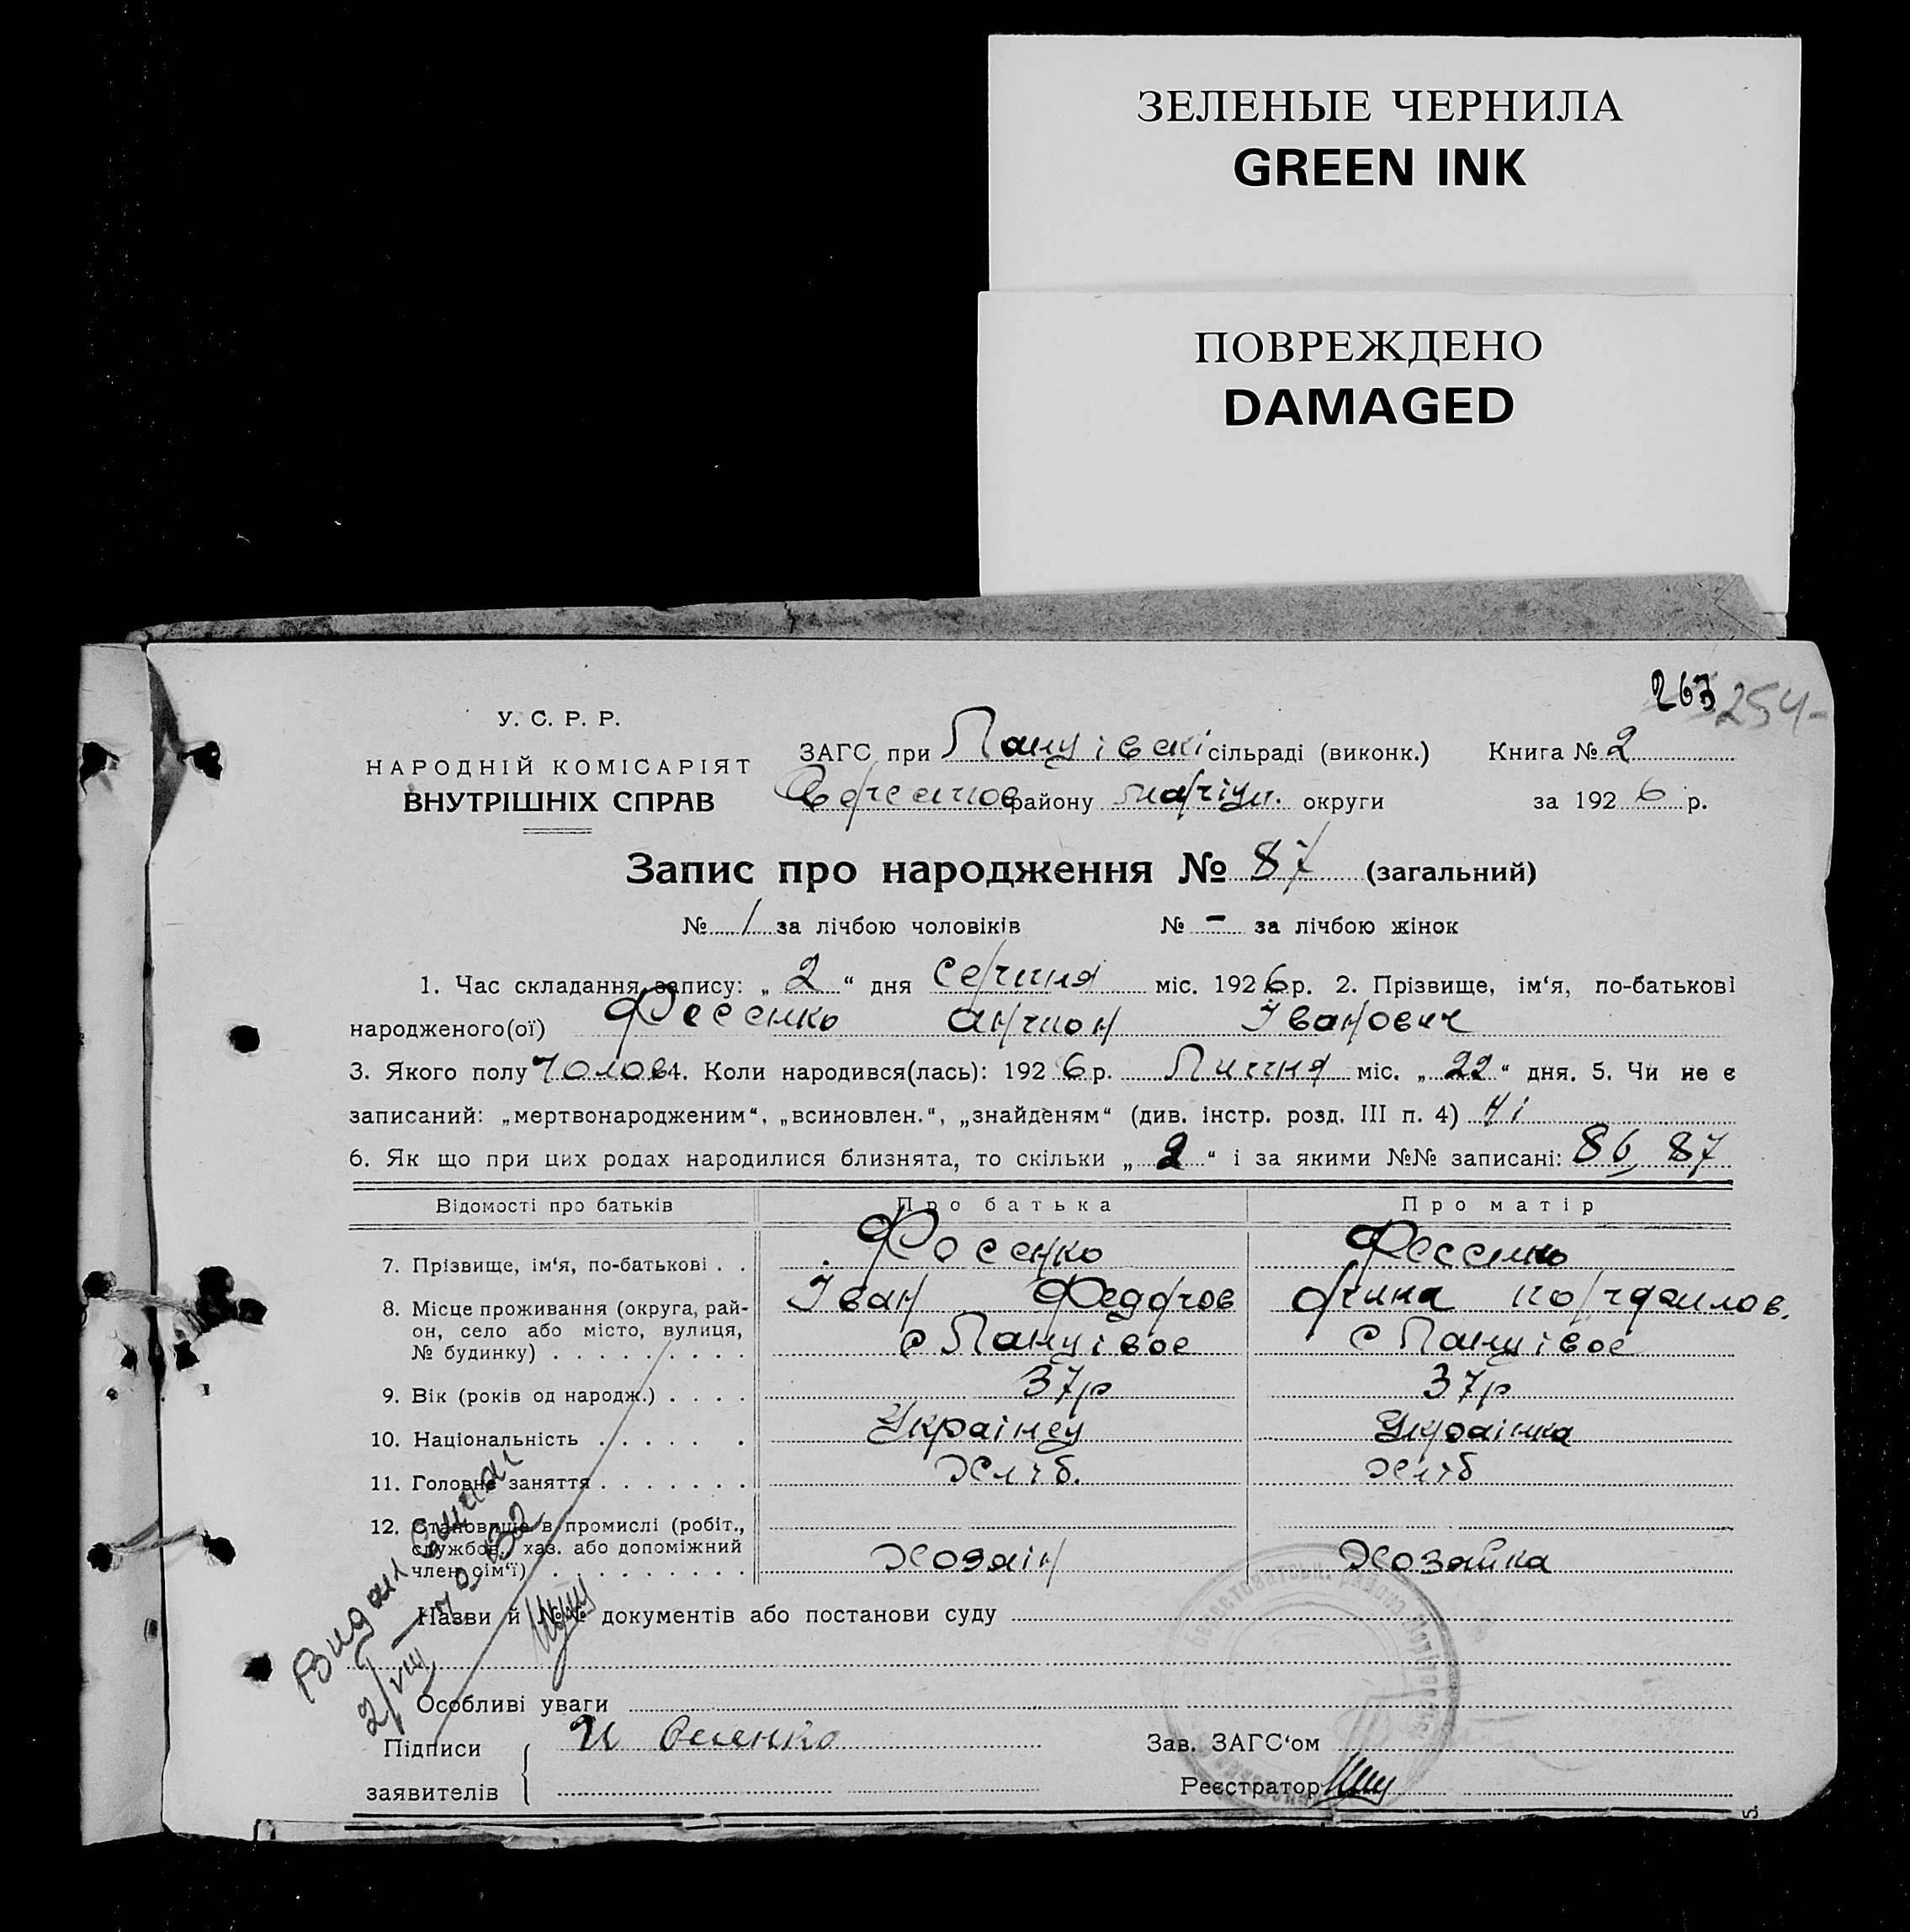 ЗЕЛЕНЫЕ ЧЕРНИЛА
GREEN INK
ПОВРЕЖДЕНО
DAMAGED
263 254
У. С. Р. Р.
НАРОДНІЙ КОМІСАРІЯТ
ВНУТРІШНІХ СПРАВ
ЗАГС при сільраді (виконк.) Книга № 2
району маріуп. округи за 192 6 р.
Запис про народження № 87 (загальний)
№ 1 за лічбою чоловіків № - за лічбою жінок
1. Час складання запису: „ 2 “ дня серпня міс. 192 6 р. 2. Прізвище, ім‘я, по-батькові
народженого(ої) Фесенко Антон Іванович
3. Якого полу Чолов 4. Коли народився(лась): 192 6 р. Липня міс. „ 22 “ дня. 5. Чи не є
записаний: „мертвонародженим“, „всиновлен.“, „знайденям“ (див. інстр. розд. III п. 4) Ні
6. Як що при цих родах народилися близнята, то скільки „ 2 “ і за якими №№ записані: 86, 87
Відомості про батьків Про батька Про матір
7. Прізвище, ім‘я, по-батькові . . Фесенко Фесенко
Іван Федоров
8. Місце проживання (округа, рай-
он, село або місто, вулиця,
№ будинку) . . . . . . . . .
9. Вік (років од народж.) . . . . 37р 37р
10. Національність . . . . . . Українец Українка
11. Головне заняття . . . . . . . Хліб. Хліб
12. Становище в промислі (робіт.,
службов., хаз. або допоміжний
член сім‘ї) . . . . . . . . . . Хозаін Хозайка
Назви й №№ документів або постанови суду
Особливі уваги
Підписи
заявителів
Зав. ЗАГС‘ом
Реєстратор
Видан
2/VIII 32
5.